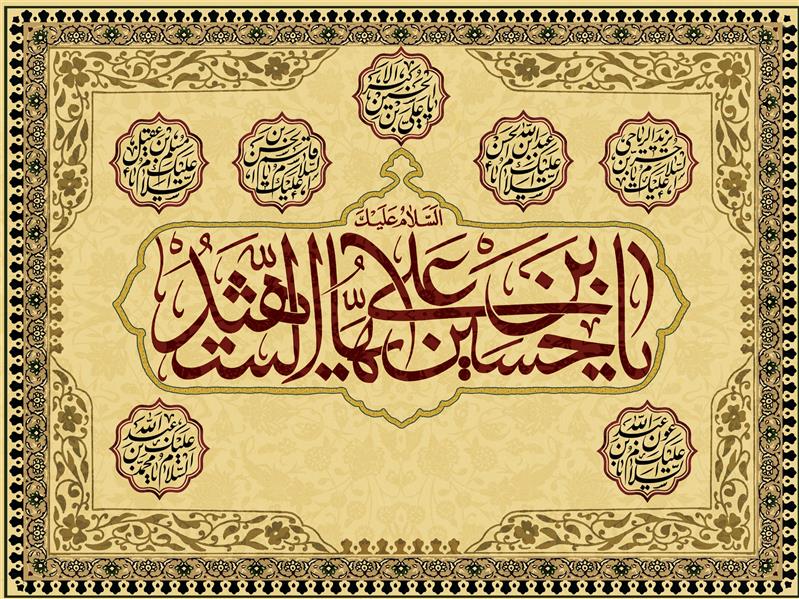 السلام علیک یا علی بن الحسین الاکبر
السلام علیک یا حر بن یزید الریاحی
السلام علیک یا عبدالله بن الحسن
السلام علیک یا قاسم بن حسن
السلام علیک یا مسلم بن عقیل
اَلسَّلامُ عَلَیْكَ
یا حسین بن علی ایها الشهید
السلام علیک یا عون بن عبدالله
السلام علیک یا محمد بن عبدالله